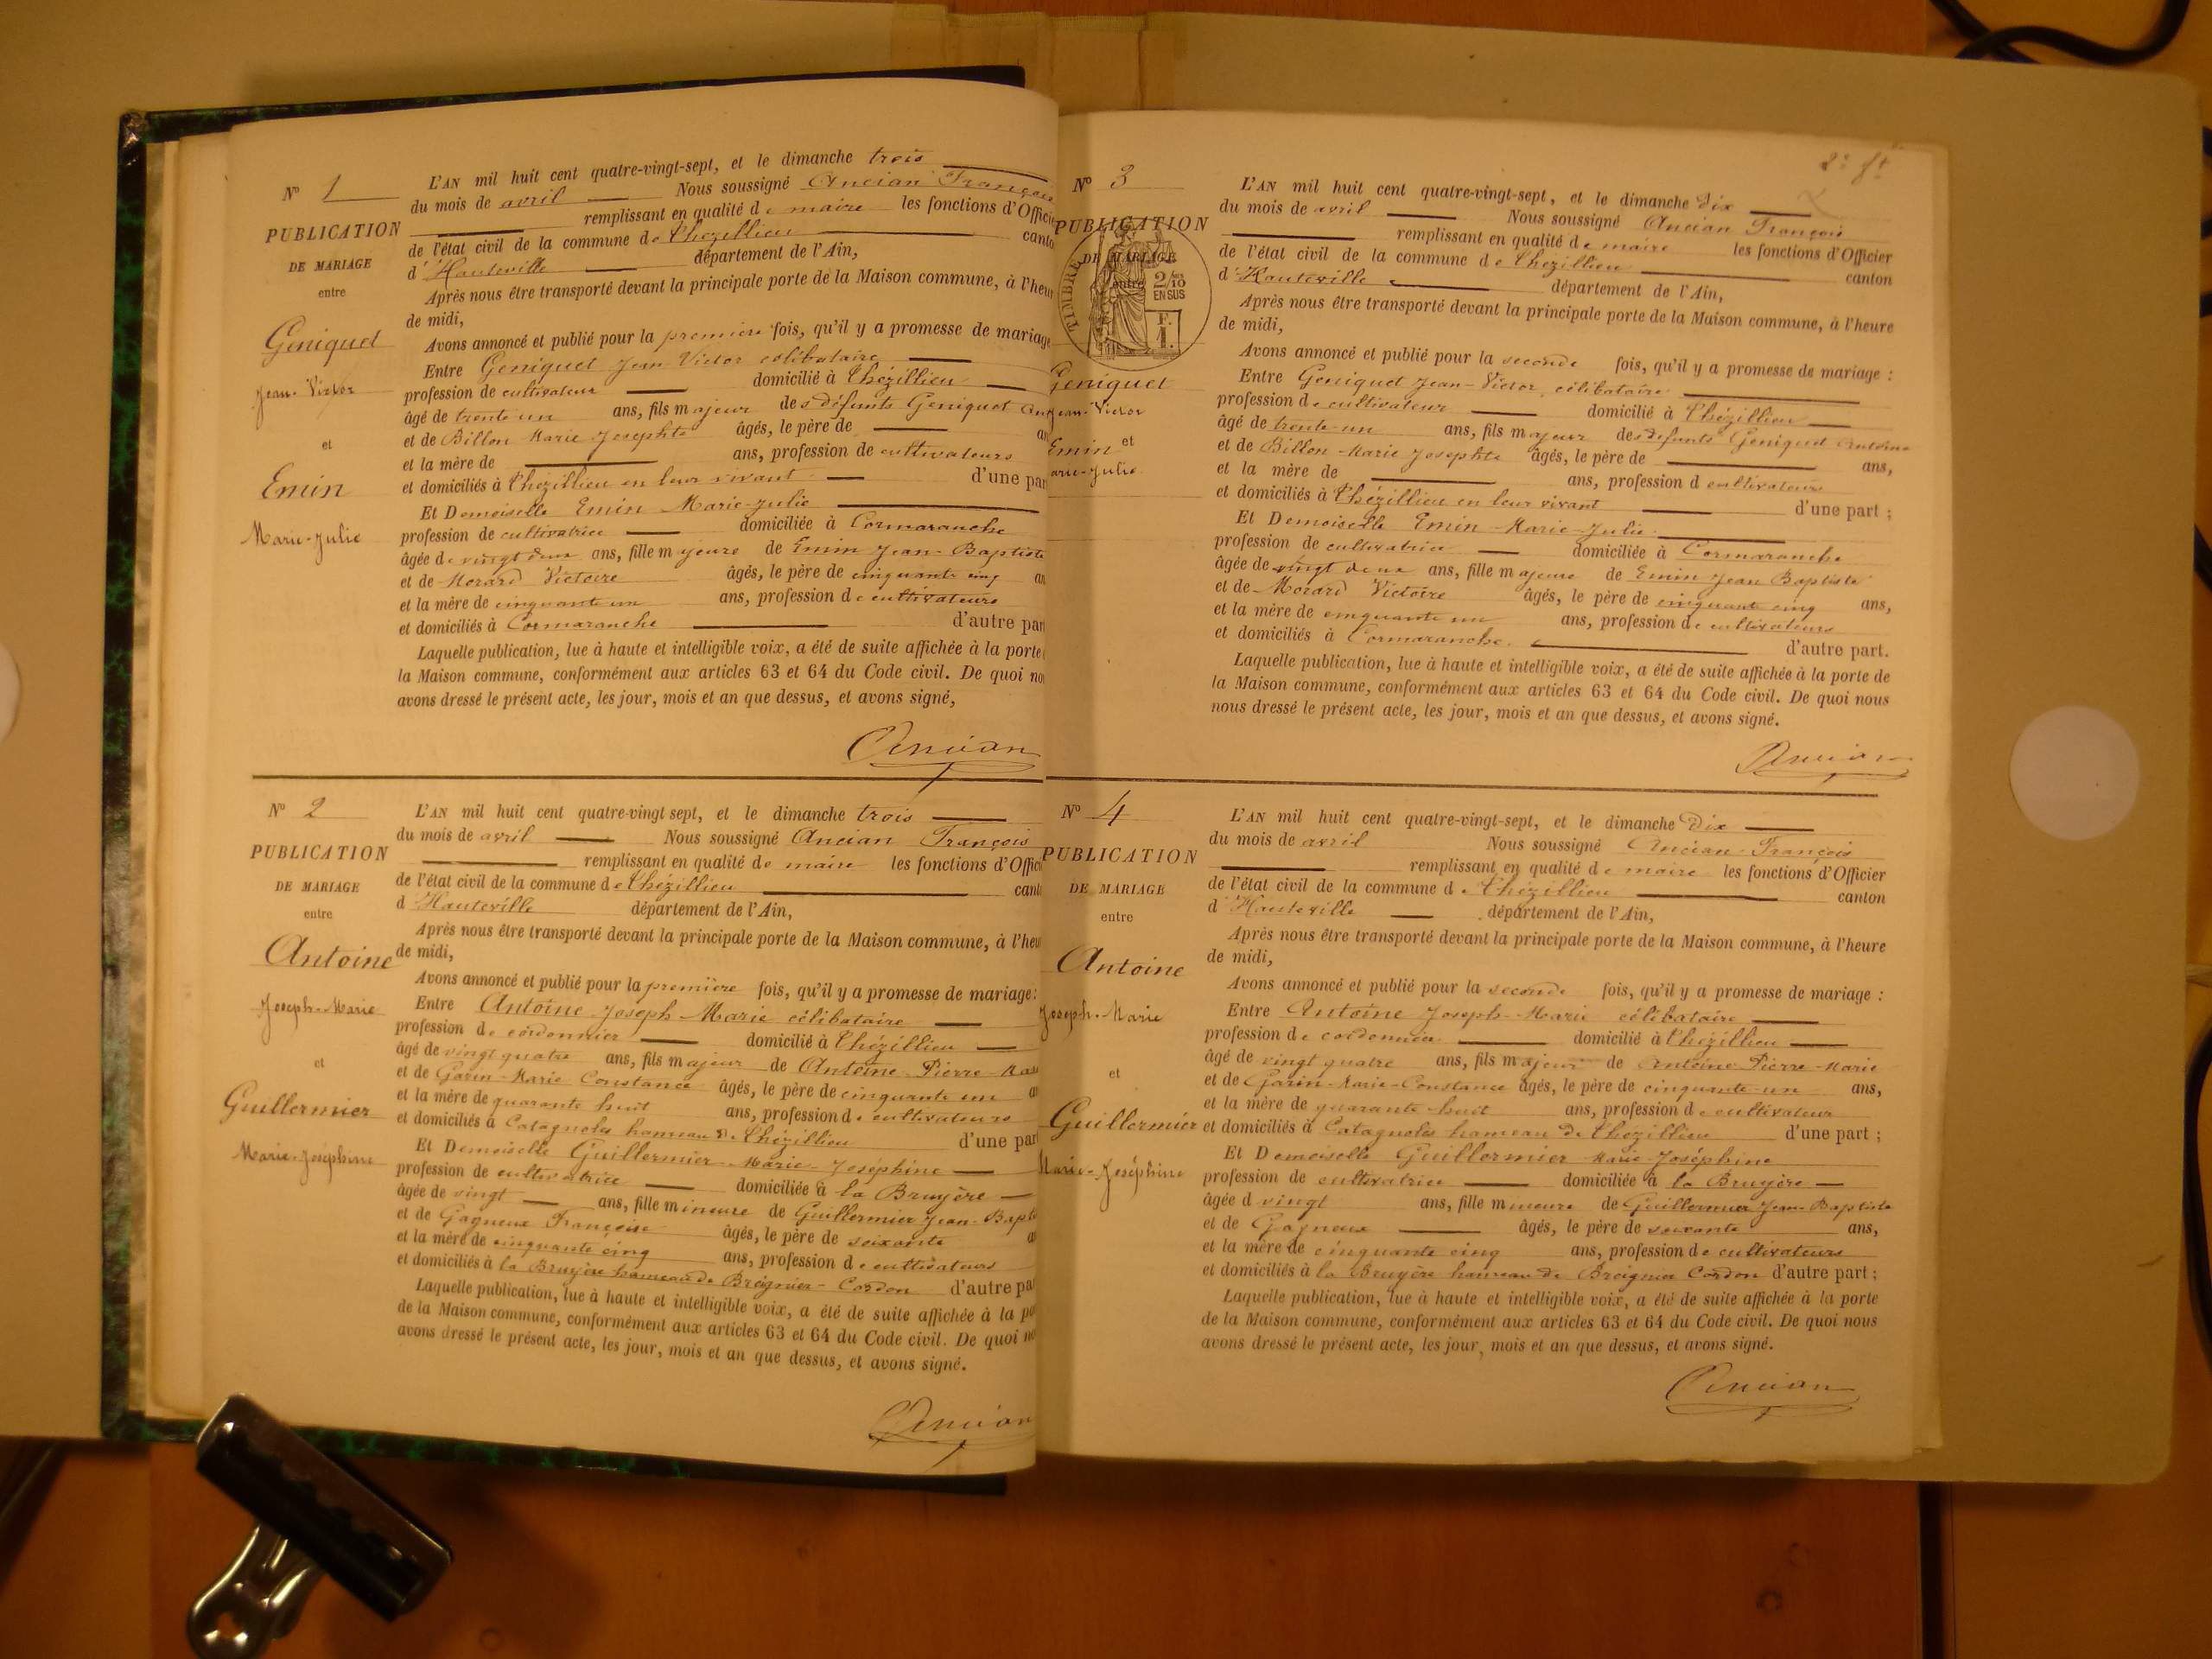 Nº 1
PUBLICATION
DE MARIAGE
entre
Geniquet
Jean-Victor
et
Emin
Marie-Julie
L'AN mil huit cent quatre-vingt-sept, et le dimanche trois
du mois de avril Nous soussigné Ancian François
remplissant en qualité de maire les fonctions d'Offici
de l'état civil de la commune de Thézillieu canto
d'Hauteville département de l'Ain,
Après nous être transporté devant la principale porte de la Maison commune, à l'heu
de midi,
Avons annoncé et publié pour la première fois, qu'il y a promesse de mariage
Entre Geniquet Jean Victor célibataire
profession de cultivateur domicilié à Thézillieu
âgé de trente-un ans, fils majeur des défunts Geniquet
et de Billon Marie Josephte âgés, le père de an
et la mère de ans, profession de cultivateurs
et domiciliés à Thézillieu en leur vivant d'une par
Et Demoiselle Emin Marie-Julie
profession de cultivatrice domiciliée à Cormaranche
âgée de vingt deux ans, fille majeure de Emin Jean-Baptiste
et de Morard Victoire âgés, le père de cinquante cinq an
et la mère de cinquante un ans, profession de cultivateurs
et domiciliés à Cormaranche d'autre part
Laquelle publication, lue à haute et intelligible voix, a été de suite affichée à la porte
la Maison commune, conformément aux articles 63 et 64 du Code civil. De quoi no
avons dressé le présent acte, les jour, mois et an que dessus, et avons signé,
Ancian
Nº 2
PUBLICATION
DE MARIAGE
entre
Antoine
Joseph-Marie
et
Guillermier
Marie-Joséphine
L'AN mil huit cent quatre-vingt sept, et le dimanche trois
du mois de avril Nous soussigné Ancian François
remplissant en qualité de maire les fonctions d'Offici
de l'état civil de la commune de Thézillieu canto
d'Hauteville département de l'Ain,
Après nous être transporté devant la principale porte de la Maison commune, à l'heu
de midi,
Avons annoncé et publié pour la première fois, qu'il y a promesse de mariage :
Entre Antoine Joseph-Marie célibataire
profession de cordonnier domicilié à Thézillieu
âgé de vingt quatre ans, fils majeur de Antoine Pierre-Ma
et de Garin-Marie Constance âgés, le père de cinquante un a
et la mère de quarante huit ans, profession de cultivateurs
et domiciliés à Catagnoles hameau de Thézillieu d'une par
Et Demoiselle Guillermier Marie-Joséphine
profession de cultivatrice domiciliée à la Bruyère
âgée de vingt ans, fille mineure de Guillermier Jean-Bapt
et de Gagneux Françoise âgés, le père de soixante a
et la mère de cinquante cinq ans, profession de cultivateurs
et domiciliés à la Bruyère hameau de Bregnier-Cordon d'autre pa
Laquelle publication, lue à haute et intelligible voix, a été de suite affichée à la po
de la Maison commune, conformément aux articles 63 et 64 du Code civil. De quoi no
avons dressé le présent acte, les jour, mois et an que dessus, et avons signé.
Ancian
2e ft
Nº 3
PUBLICATION
DE MARIAGE
entre
TIMBRE
2/10
EN SUS
F.
1.
Geniquet
Jean-Victor
et
Emin
arie-Julie
L'AN mil huit cent quatre-vingt-sept, et le dimanche dix
du mois de avril Nous soussigné Ancian François
remplissant en qualité de maire les fonctions d'Officier
de l'état civil de la commune de Thézillieu canton
d'Hauteville département de l'Ain,
Après nous être transporté devant la principale porte de la Maison commune, à l'heure
de midi,
Avons annoncé et publié pour la seconde fois, qu'il y a promesse de mariage :
Entre Geniquet Jean-Victor, célibataire
profession de cultivateur domicilié à Thézillieu
âgé de trente-un ans, fils majeur des défunts Geniquet Antoine
et de Billon-Marie Josephte âgés, le père de ans,
et la mère de ans, profession d cultivateurs
et domiciliés à Thézillieu en leur vivant d'une part ;
Et Demoiselle Emin-Marie-Julie
profession de cultivatrice domiciliée à Cormaranche
âgée de vingt deux ans, fille majeure de Emin Jean Baptiste
et de Morard Victoire âgés, le père de cinquante cinq ans,
et la mère de cinquante un ans, profession de cultivateurs
et domiciliés à Cormaranche. d'autre part.
Laquelle publication, lue à haute et intelligible voix, a été de suite affichée à la porte de
la Maison commune, conformément aux articles 63 et 64 du Code civil. De quoi nous
nous dressé le présent acte, les jour, mois et an que dessus, et avons signé.
Ancian
Nº 4
PUBLICATION
DE MARIAGE
entre
Antoine
Joseph-Marie
et
Guillermier
Marie-Joséphine
L'AN mil huit cent quatre-vingt-sept, et le dimanche Dix
du mois de avril Nous soussigné Ancian François
remplissant en qualité de maire les fonctions d'Officier
de l'état civil de la commune de Thézillieu canton
d'Hauteville département de l'Ain,
Après nous être transporté devant la principale porte de la Maison commune, à l'heure
de midi,
Avons annoncé et publié pour la seconde fois, qu'il y a promesse de mariage :
Entre Antoine Joseph-Marie célibataire
profession de cordonnier domicilié à Thézillieu
âgé de vingt quatre ans, fils majeur de Antoine Pierre-Marie
et de Garin-Marie-Constance âgés, le père de cinquante-un ans,
et la mère de quarante-huit ans, profession de cultivateur
et domiciliés à Catagnoles hameau de Thézillieu d'une part ;
Et Demoiselle Guillermier Marie-Joséphine
profession de cultivatrice domiciliée à la Bruyère
âgée d vingt ans, fille mineure de Guillermier Jean-Baptiste
et de Gagneux âgés, le père de soixante ans,
et la mère de cinquante cinq ans, profession de cultivateurs
et domiciliés à la Bruyère hameau de Bregnier Cordon d'autre part ;
Laquelle publication, lue à haute et intelligible voix, a été de suite affichée à la porte
de la Maison commune, conformément aux articles 63 et 64 du Code civil. De quoi nous
avons dressé le présent acte, les jour, mois et an que dessus, et avons signé.
Ancian